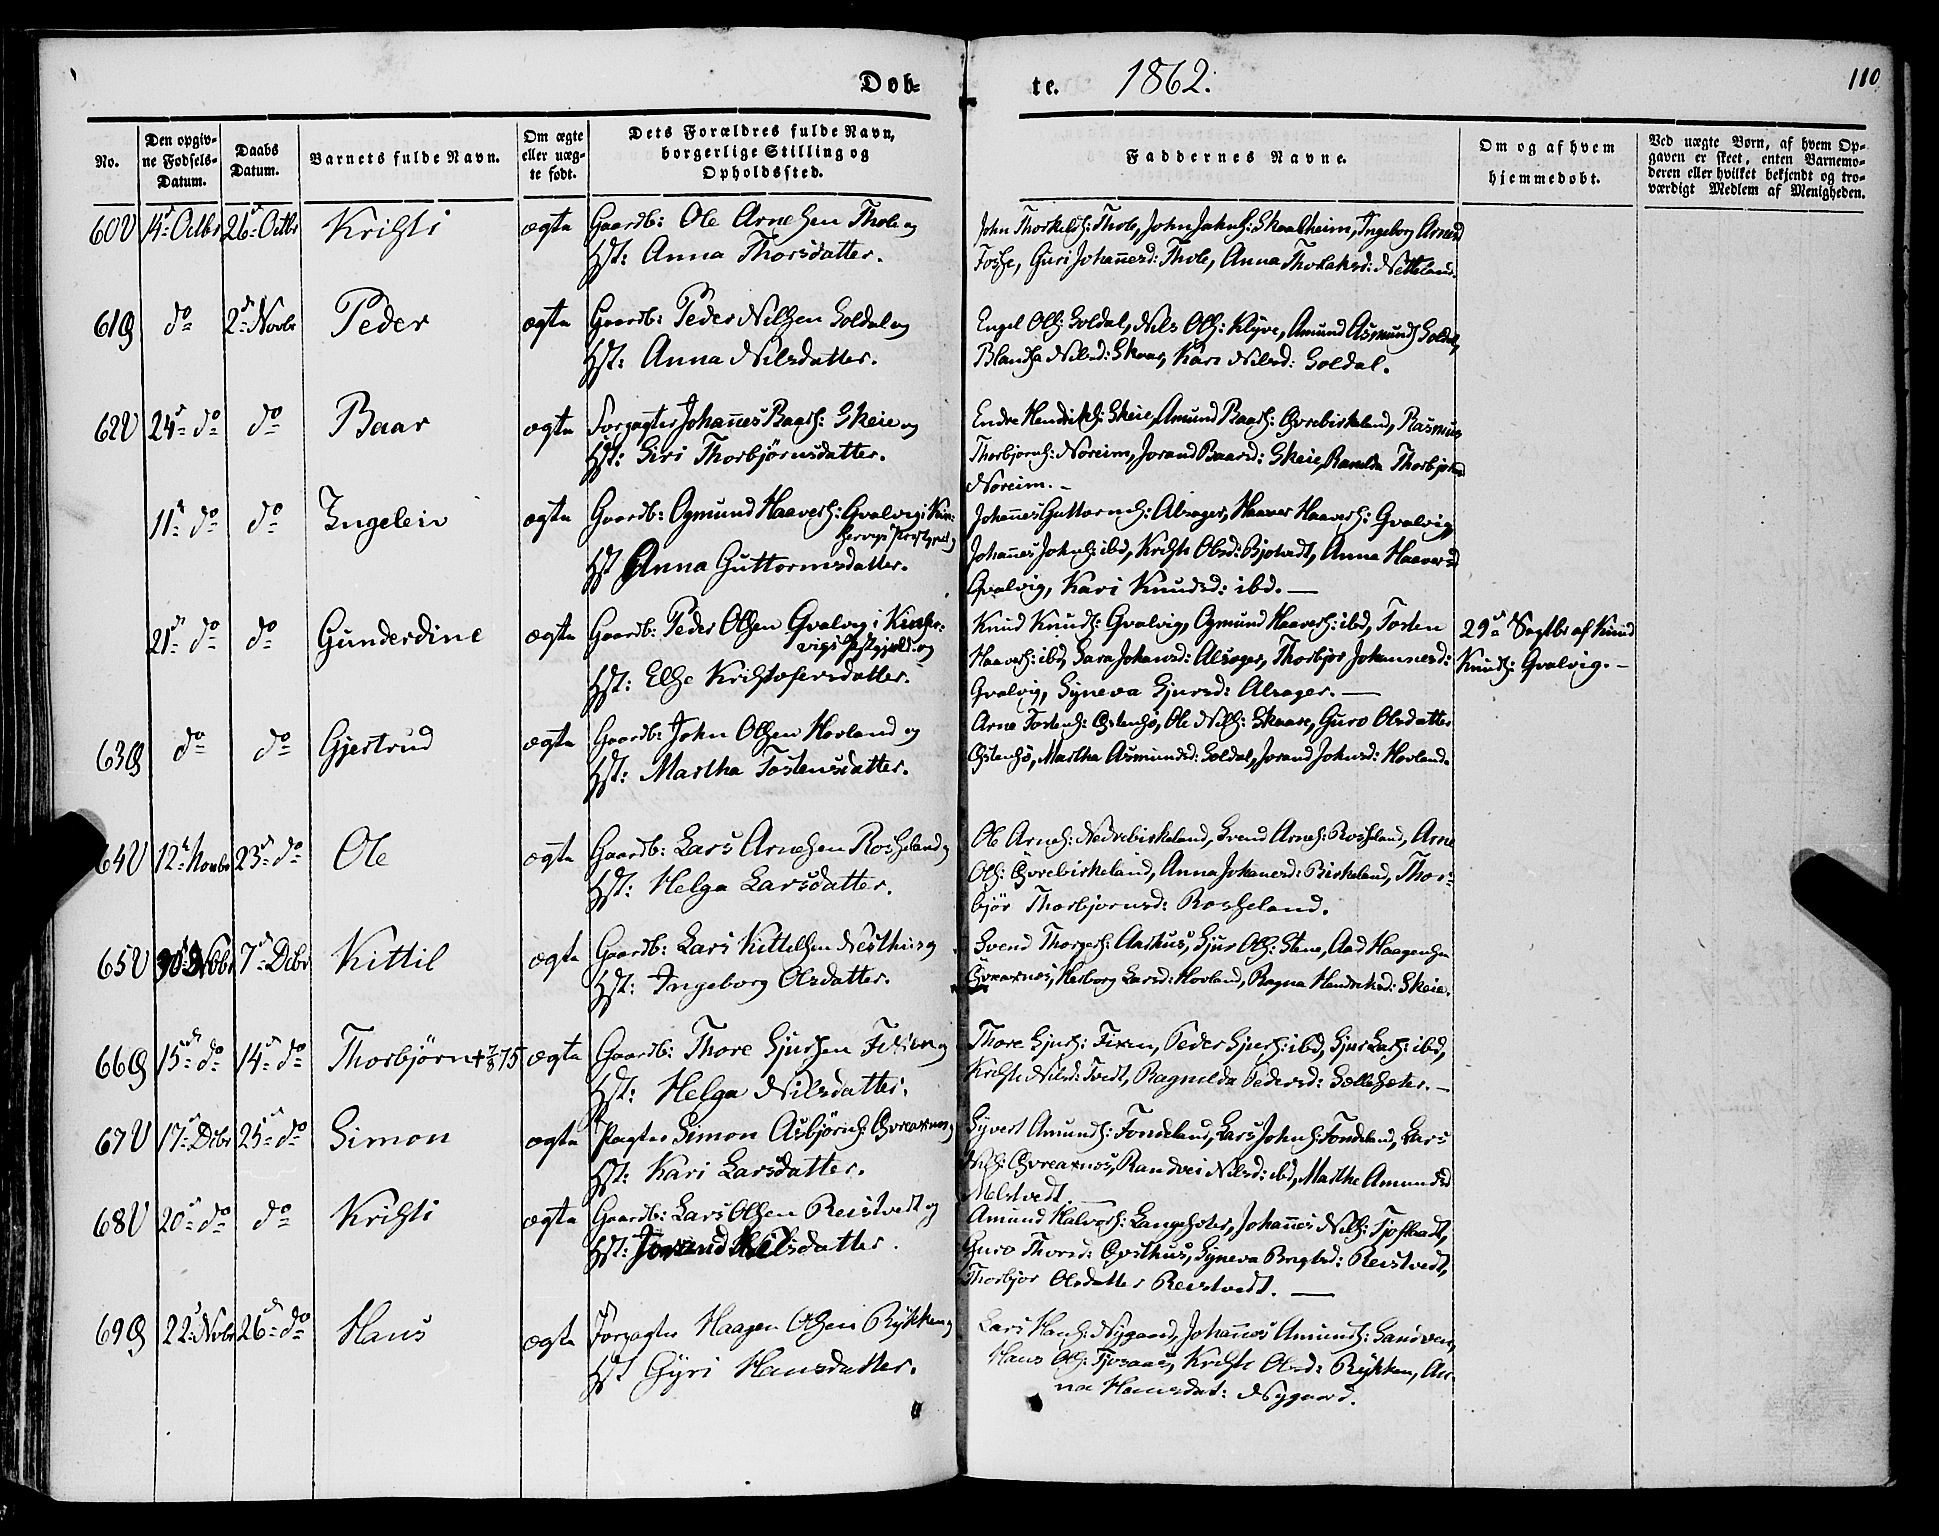 Dob-
te. 1862.
110
No.
Den opgiv-
ne Fødsels-
Datum.
Daabs
Datum.
Barnets fulde Navn.
Om ægte
eller uæg-
te født.
Dets Forældres fulde Navn,
borgerlige Stilling og
Opholdssted.
Faddernes Navne.
Om og af hvem
hjemmedøbt.
Ved uægte Børn, af hvem Op-
gaven er skeet, enten Barnemo-
deren eller hvilket bekjendt og tro-
værdigt Medlem af Menigheden.
60 14 Octbr 26 Octbr Kristi ægte Gaardb: Ole Arnesen Thole og
Hst: Anna Thorsdatter.
John Thorkelds: Thole, John Johns: Skaalheim, Ingeborg Arnesd
Fosse, Guri Johannesd: Thole, Anna Netteland.
61 do 2 Novbr Peder ægte Gaardb: Peder Nilsen Soldal og
Hst: Anna Nilsdatter.
Engel Ols: Soldal, Nils Ols: Klyve, Amund Asmunds Soldal,
Nilsd: Skaar, Kari Nilsd: Soldal.
62 24 do do Baar ægte Forpagter Johannes Baars: Skeie og
Hst: Siri Thorbjørnsdatter.
Endre Hendriks: Skeie, Amund Baars: Øvrebirkeland, Rasmus
Thorbjørns: Noreim, Jorand Baarsd: Skeie, Thorbjørnsd
Noreim.
11 do do Engelein ægte Gaardb: Ogmund Haavers: Qvalvig i Kin-
Hst Anna Guttormsdatter.
Johannes Guttorms: Alsager, Haaver Haavers: Qvalvig,
Johannes Johns: ibd, Kristi Olsd: Anna Haaversd
Qvalvig, Kari Knudsd: ibd.
21 do do Gunderdine ægte Gaardb: Peder Olsen Qvalvig i Kinser-
vigs Præstgjeld og
Hst: Else Kristofersdatter.
Knud Knuds: Qvalvig, Ogmund Haavers: ibd, Tosten
Haavers: ibd, Sara Johansd: Alsager, Thorbjør Johannesd:
Qvalvig, Syneva Sjursd: Alsager.
29 Septbr af Knud
Knuds: Qvalvig.
63 do do Gjertrud ægte Gaardb: John Olsen Hovland og
Hst: Martha Tostensdatter.
Arne Tostens: Østensø, Ole Nils: Skaare, Guro Olsdatter
Østensø, Martha Asmundsd: Soldal, Jorand Johnsd: Hovland.
64 12 Novbr 23 do Ole ægte Gaardb: Lars Arnesen Rosseland
Hst: Helga Larsdatter.
Ole Arnes: Nedrebirkeland, Svend Arnes: Rosseland, Arne
Ols: Øvrebirkeland, Anna Johannesd: Birkeland, Thor-
bjør Thorbjørnsd: Rosseland.
65 30 Novbr 7 Decbr Kittil ægte Gaardb: Lars Kittelsen Nesthus og
Hst: Ingeborg Olsdatter.
Svend Thorgers: Aarhus, Sjur Ols: Steine, Aad Haagensen
Herborg Larsd: Hovland, Ragna Hendriksd: Skeie.
66 15 do 14 do Thorbjørn ægte Gaardb: Thore Sjursen Fixen og
Hst: Helga Nilsdatter.
Thore Sjurs: Fixen, Peder Sjurs: ibd, Sjur Lars: ibd,
Kristi Nilsd: Tvedt, Ragnilda Pedersd:
67 17 Decbr 25 do Simon ægte Pagter Simon Asbjørns:
Hst: Kari Larsdatter.
Syvert Amunds: Fondeland, Lars Johns: Fondeland, Lars
Randvei Nilsd: ibd, Marthe Amundsd
68 20 do do Kristi ægte Gaardb: Lars Olsen Reistvedt og
Hst: Jorand Nilsdatter.
Amund Halvors: Langeseter, Johannes Nils: Tjoflaadt,
Guro Thorsd: Syneva Reistvedt,
Thorbjør Olsdatter Reistvedt.
69 22 Novbr 26 do Hans ægte Forpagter Haagen Olsen Rykken
Hst Gyri Hansdatter.
Lars Hans: Nygaard, Johannes Amunds: Sandven,
Hans Ols: Kristi Olsd: Rykken, An-
na Hansdat: Nygaard.